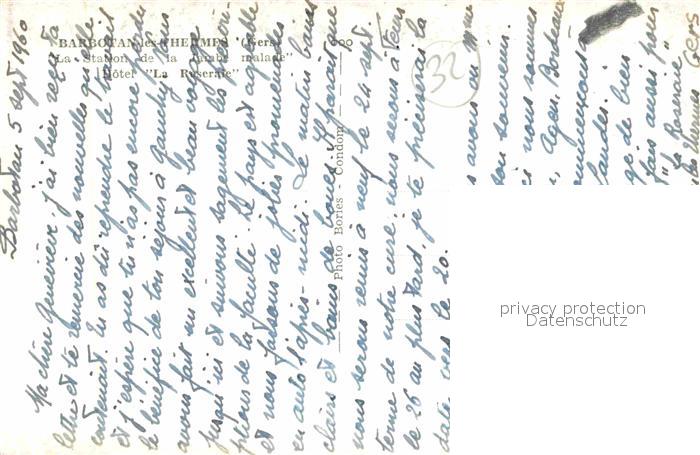 BARBOTAN-les-THERMES (Gers)
"La Station de la Jambe malade"
Hôtel "La Roseraie"
Photo Bories - Condom
32
Barbotan 5 sept 1960
Ma chère Geneviève, j'ai bien reçu ta
lettre et te remercie des nouvelles qu'elle
contenait. Tu as dû reprendre le travail
et j'espère que tu n'as pas encore perdu
le bénéfice de ton séjour à Nous
avons fait un excellent et beau voyage
jusqu'ici et suivons sagement les
de la Faculté. Le pays est agréable
et nous faisons de jolies promenades
en auto l'après-midi. Le matin bains
clairs et bains de boue. Il paraît que
nous serons remis à neuf le 24 sept
terme de notre cure, nous serons à Tours
le 26 au plus tard, je te préciserai la
date vers le 20.
avons eu
son
nous sommes
Agen, Bordeaux
Landes.
de bien
fais aussi pour
"La Roseraie"
Gers
privacy protection
Datenschutz